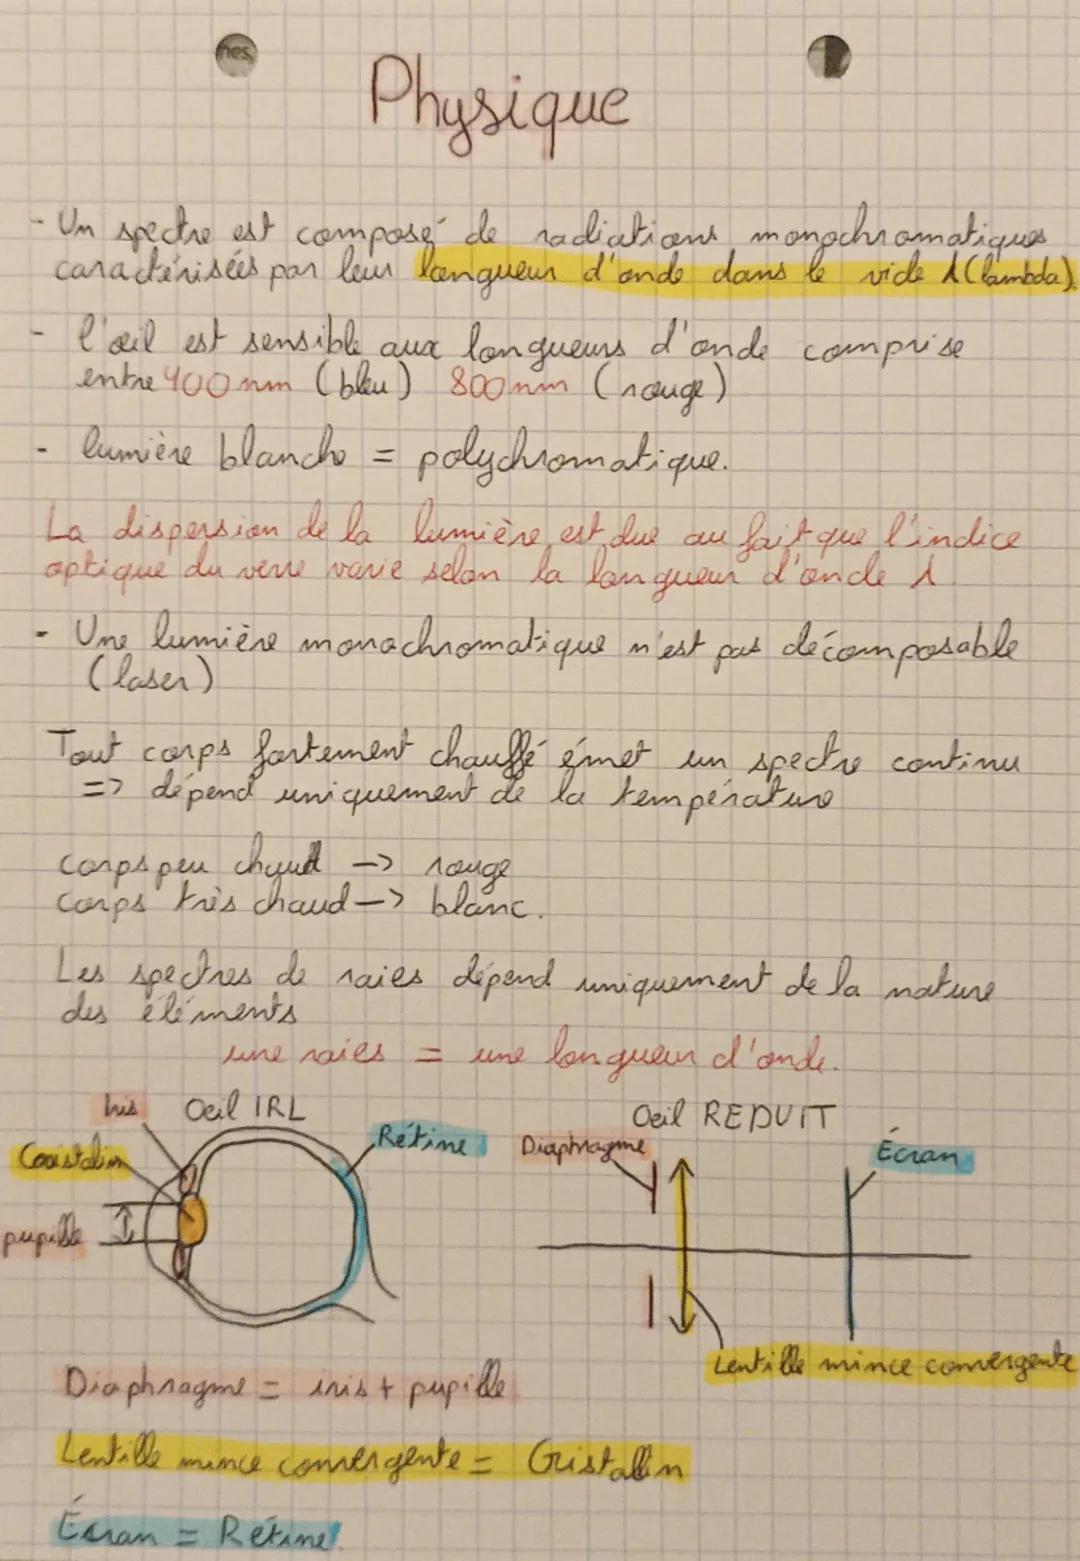 Physique
- Un spectre est composé de radiations monochromatiques
caractérisées par leur longueur d'onde dans le vide λ (lambda).
- l'œil est sensible aux longueurs d'onde comprise
entre 400 nm (bleu) 800 nm (rouge)
- lumière blanche = polychromatique.
La dispersion de la lumière est due au fait que l'indice
optique du verre varie selon la longueur d'onde λ
- Une lumière monochromatique n'est pas décomposable
(laser)
Tout corps fortement chauffé émet un spectre continu
=> dépend uniquement de la température
corps peu chaud -> rouge
corps très chaud -> blanc.
Les spectres de raies dépend uniquement de la nature
des éléments
une raies = une longueur d'onde.
Iris
Oeil IRL
Cristallin
pupille
Rétine
Oeil REDUIT
Diaphragme
Écran
Lentille mince convergente
Diaphragme = iris + pupille
Lentille mince convergente = Cristallin
Écran = Rétine.